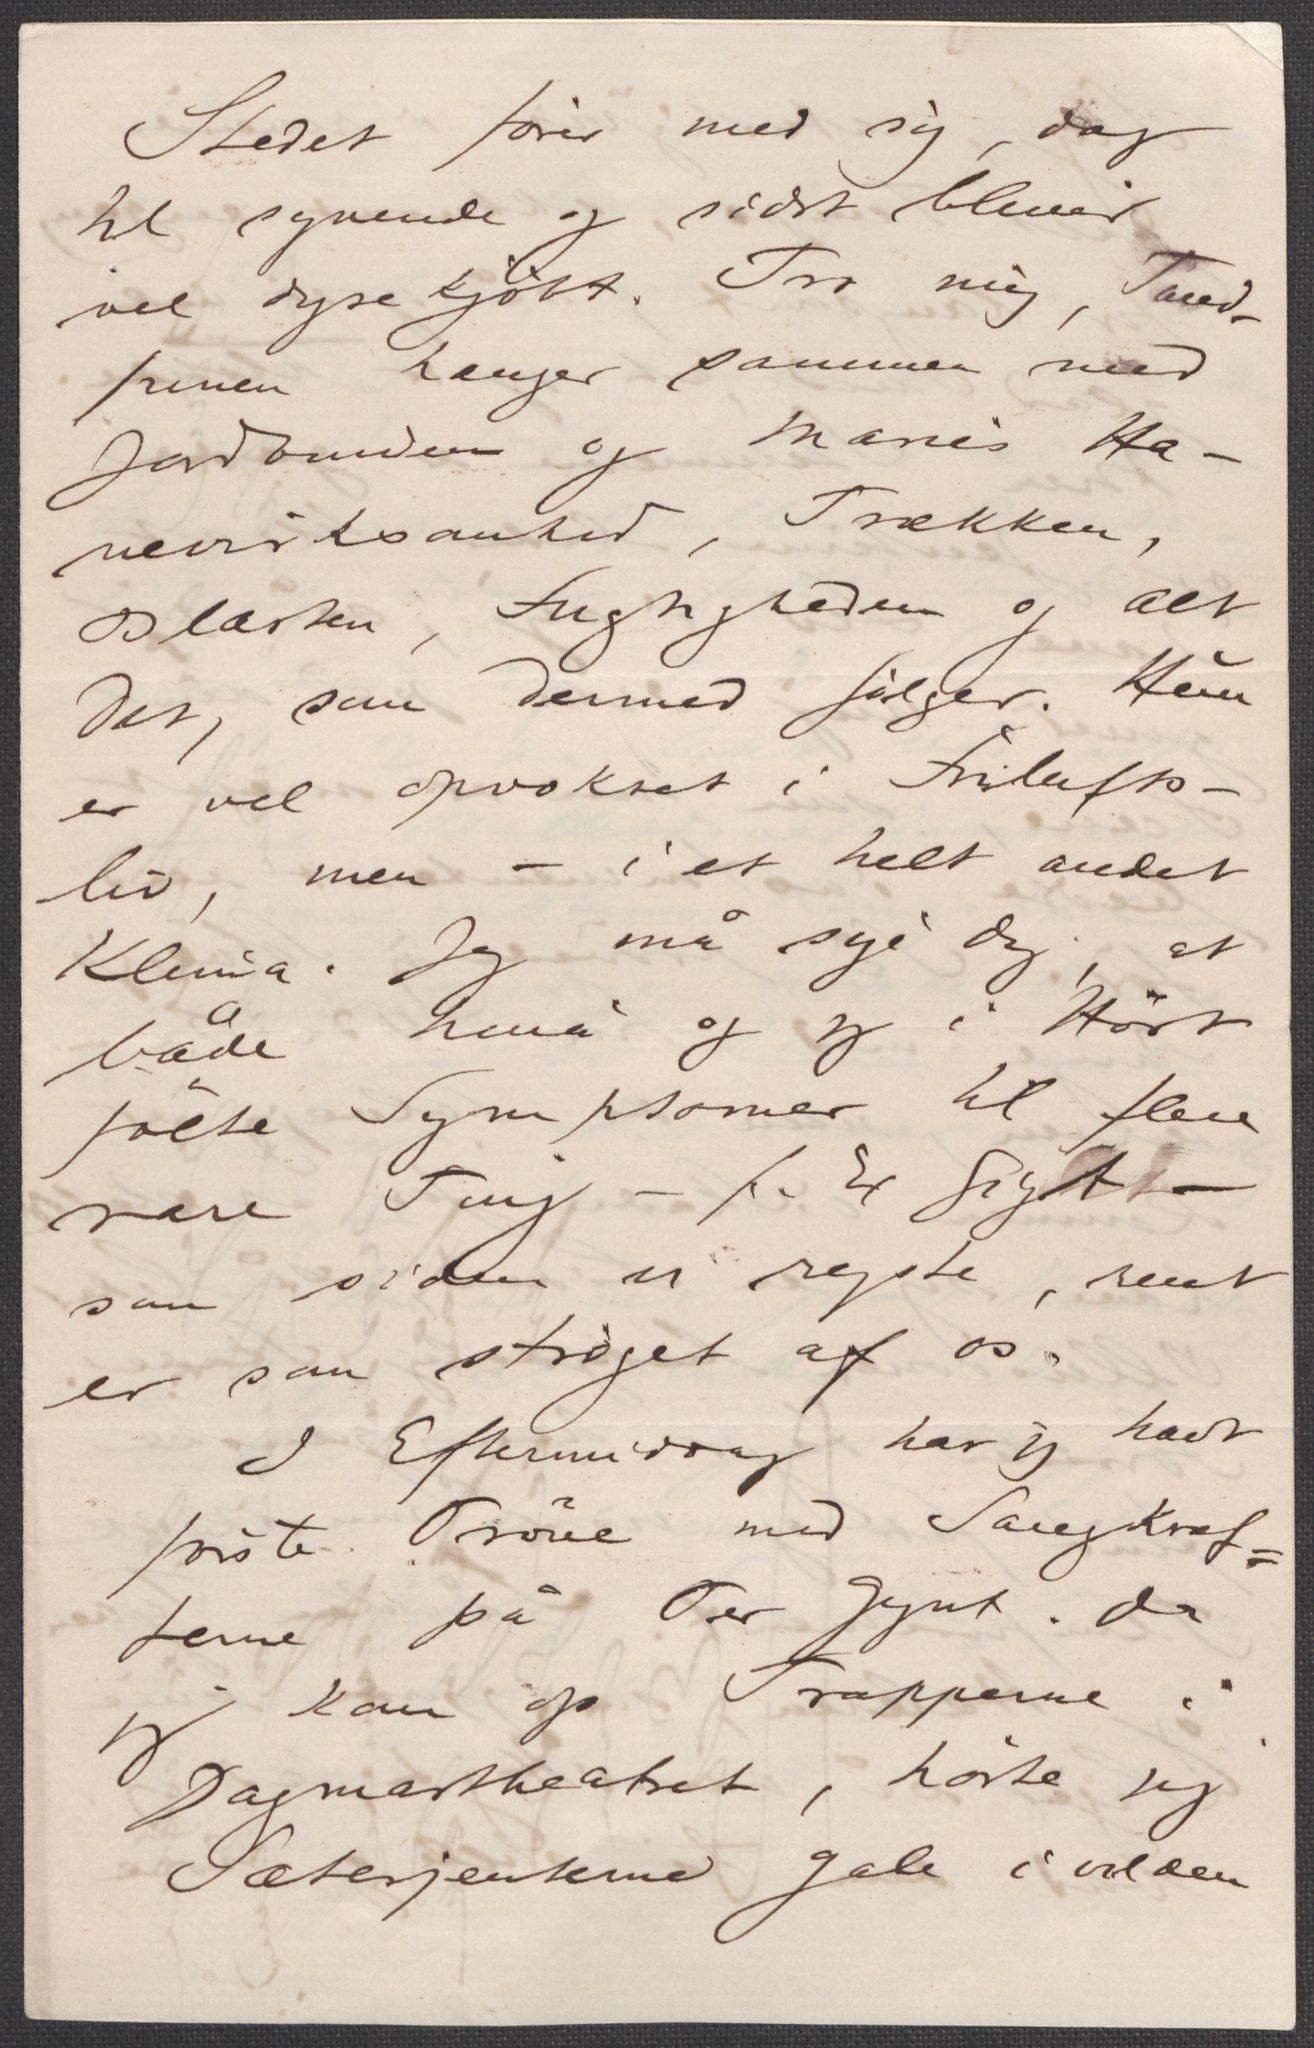 Stedet fører med sig, dog
til syvende og sidst bliver
vel dyrekjöbt. Tro mig, Tand-
pinen hænger sammen med
Jordbunden og Maries Ha-
vevirksomhed, Trækken,
Blæsten, Fugtigheden og alt
det, som dermed fölger. Hun
er vel opvokset i Frilufts-
liv, men – i et helt andet
Klima. Jeg må sige dig, at
både Nina og jeg i Höst
fölte Symptomer til flere
rare Ting – f. Ex Gigt –
som siden vi rejste, rent
er som ströget af os.
I Eftermiddag har jeg havt
förste Pröve med Sangkræf=
terne på Peer Gynt. Da
jeg kom op Trapperne i
Dagmartheatret, hörte jeg
Sæterjenterne gale i vilden